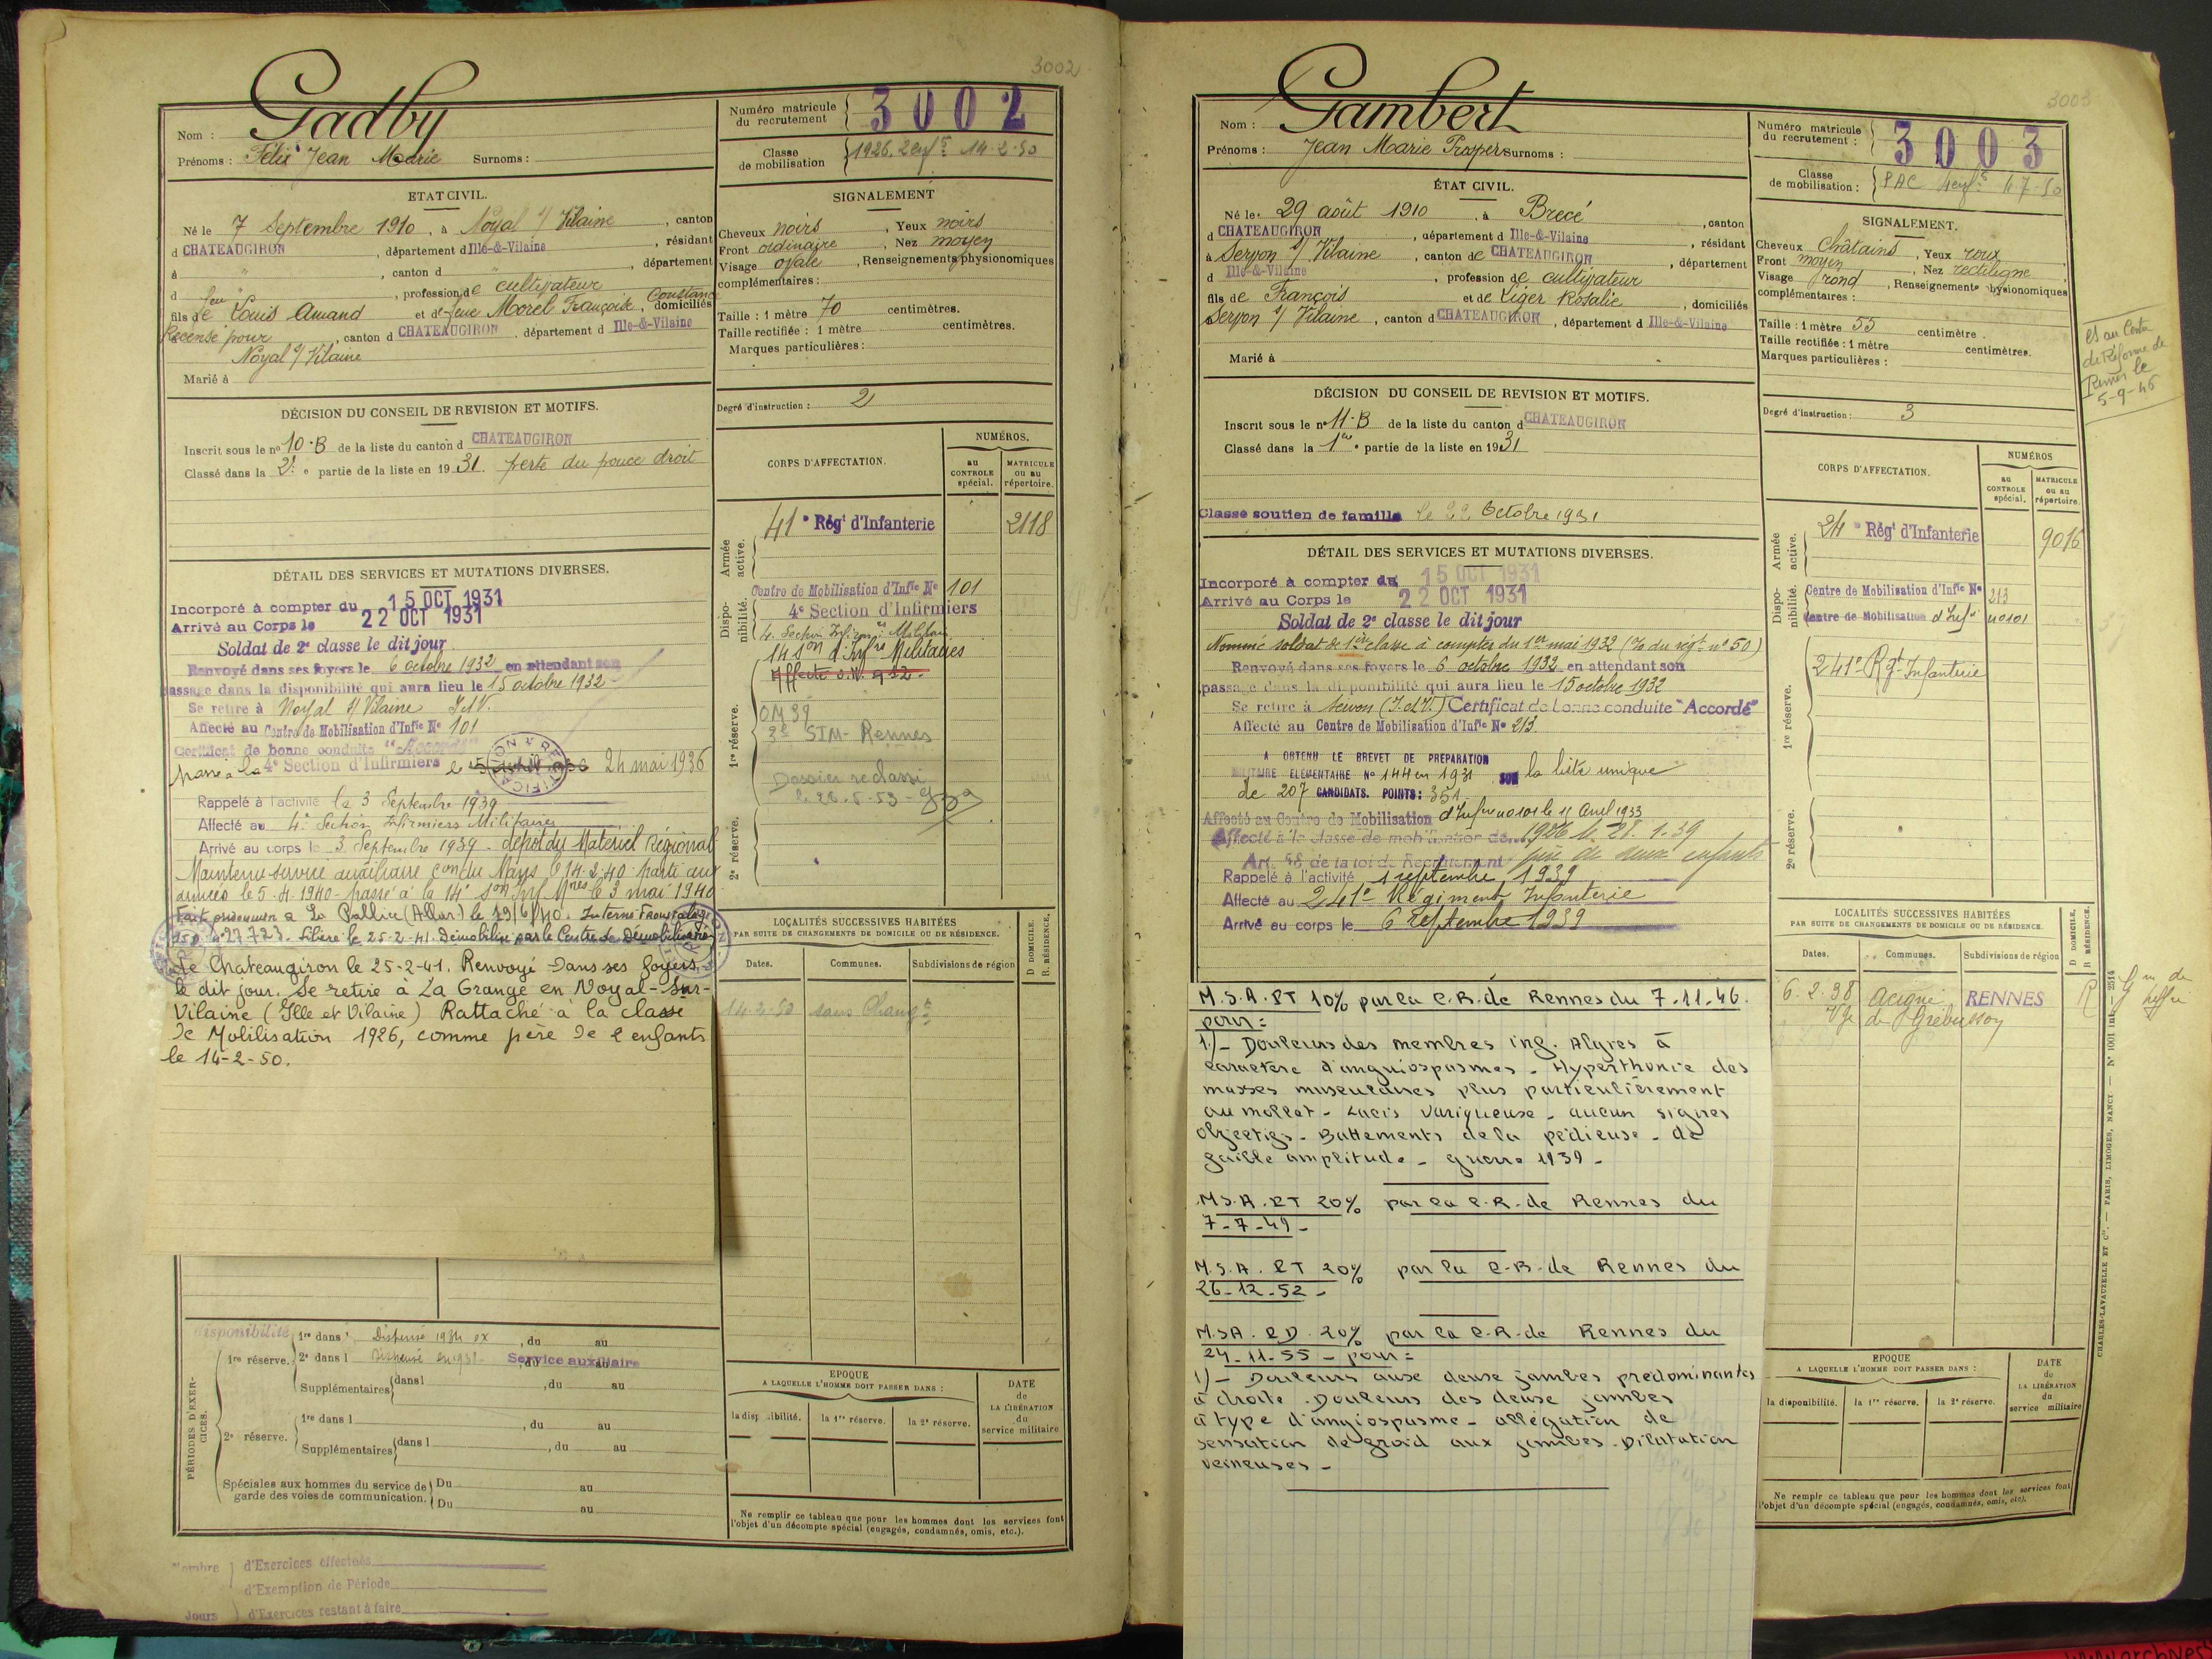 3002
Nom : Gadby
Prénoms : Félix Jean Marie Surnoms :
Numéro matricule du recrutement 3002
Classe de mobilisation 1926. 2 enfts 14-2-50
ETAT CIVIL.
Né le 7 Septembre 1910, à Noyal s/ Vilaine, canton
d CHATEAUGIRON, département d Ille-&-Vilaine, résidant
à " , canton d " , département
d " , profession de cultivateur
fils de feu Louis Amand et de feue Morel Françoise Constance, domiciliés
Recensé pour , canton d CHATEAUGIRON, département d Ille-&-Vilaine
Noyal s/ Vilaine
Marié à
SIGNALEMENT
Cheveux noirs, Yeux noirs
Front ordinaire, Nez moyen
Visage ovale, Renseignements physionomiques
complémentaires :
Taille : 1 mètre 70 centimètres.
Taille rectifiée : 1 mètre centimètres.
Marques particulières :
Degré d'instruction : 2
DÉCISION DU CONSEIL DE REVISION ET MOTIFS.
Inscrit sous le no 10-B de la liste du canton d CHATEAUGIRON
Classé dans la 2e partie de la liste en 1931. perte du pouce droit
DÉTAIL DES SERVICES ET MUTATIONS DIVERSES.
Incorporé à compter du 15 OCT 1931
Arrivé au Corps le 22 OCT 1931
Soldat de 2e classe le dit jour
Renvoyé dans ses foyers le 6 octobre 1932 en attendant son
passage dans la disponibilité qui aura lieu le 15 octobre 1932
Se retire à Noyal s/ Vilaine I.et V.
Affecté au Centre de Mobilisation d'Infie No 101
Certificat de bonne conduite "Accordé"
passé à la 4e Section d'Infirmiers le 24 mai 1936
Rappelé à l'activité le 3 Septembre 1939
Affecté au 4e Section Infirmiers Militaires
Arrivé au corps le 3 Septembre 1939 - dépot du Matériel Régional
Maintenu service auxiliaire con du Mans le 14.2.40 - parti aux
armées le 5.4.1940 - passé à la 14e Son Inf Mres le 3 mai 1940
Fait prisonnier à La Pallice le 19/6/40. Interné Frontstalag
No 27723. Libéré le 25-2-41. Démobilisé par le Centre de Démobilisation
de Chateaugiron le 25-2-41. Renvoyé dans ses foyers
le dit jour. Se retire à La Grange en Noyal-sur-
Vilaine (Ille et Vilaine) Rattaché à la classe
de Mobilisation 1926, comme père de 2 enfants
le 14-2-50.
CORPS D'AFFECTATION.
NUMÉROS.
au CONTROLE spécial.
MATRICULE ou au répertoire.
Armée active.
41e Régt d'Infanterie 2118
Disponibilité.
Centre de Mobilisation d'Infie No 101
4e Section d'Infirmiers
4. Section Infirmiers Militaires
14 Son d'Infres Militaires
1re réserve.
Affecté
OM 39
3e SIM - Rennes
Dossier reclassé
le 26-5-53
2e réserve.
LOCALITÉS SUCCESSIVES HABITÉES
PAR SUITE DE CHANGEMENTS DE DOMICILE OU DE RÉSIDENCE.
Dates. Communes. Subdivisions de région D DOMICILE. R RÉSIDENCE.
14-2-50 sans Changt
PÉRIODES D'EXERCICES.
disponibilité
1re réserve. 1re dans Dispensé 1934 ex , du au
2e dans l Dispensé Service auxiliaire
Supplémentaires dans l , du au
2e réserve. 1re dans l , du au
Supplémentaires dans l , du au
Spéciales aux hommes du service de garde des voies de communication. Du au
Du au
EPOQUE
A LAQUELLE L'HOMME DOIT PASSER DANS :
la disponibilité. la 1re réserve. la 2e réserve.
DATE de LA LIBÉRATION du service militaire
Ne remplir ce tableau que pour les hommes dont les services font
l'objet d'un décompte spécial (engagés, condamnés, omis, etc.).
Nombre d'Exercices effectués
d'Exemption de Période
Jours d'Exercices restant à faire
3003
Nom : Gambert
Prénoms : Jean Marie Prosper Surnoms :
Numéro matricule du recrutement : 3003
Classe de mobilisation : PAC 4 enfts 4-7-50
ÉTAT CIVIL.
Né le 29 août 1910, à Brecé, canton
d CHATEAUGIRON, département d Ille-&-Vilaine, résidant
à Servon s/ Vilaine, canton de CHATEAUGIRON, département
d Ille-&-Vilaine, profession de cultivateur
fils de François et de Liger Rosalie, domiciliés
Servon s/ Vilaine, canton d CHATEAUGIRON, département d Ille-&-Vilaine
Marié à
SIGNALEMENT.
Cheveux Châtains, Yeux roux
Front moyen, Nez rectiligne
Visage rond, Renseignements physionomiques
complémentaires :
Taille : 1 mètre 55 centimètre.
Taille rectifiée : 1 mètre centimètres.
Marques particulières :
Degré d'instruction : 3
Et au Centre
de Réforme de
Rennes le
5-9-46
DÉCISION DU CONSEIL DE REVISION ET MOTIFS.
Inscrit sous le no 11-B de la liste du canton d CHATEAUGIRON
Classé dans la 1ère partie de la liste en 1931
Classé soutien de famille le 22 Octobre 1931
DÉTAIL DES SERVICES ET MUTATIONS DIVERSES.
Incorporé à compter du 15 OCT 1931
Arrivé au Corps le 22 OCT 1931
Soldat de 2e classe le dit jour
Nommé soldat de 1ère classe à compter du 1er mai 1932 (O/ du régt no 50)
Renvoyé dans ses foyers le 6 octobre 1932 en attendant son
passage dans la disponibilité qui aura lieu le 15 octobre 1932
Se retire à Servon (I.et V.) Certificat de bonne conduite "Accordé"
Affecté au Centre de Mobilisation d'Infie No 213
A OBTENU LE BREVET DE PREPARATION
MILITAIRE ELEMENTAIRE No 144 en 1931 SUR la liste unique
de 207 CANDIDATS. POINTS : 351
Affecté au Centre de Mobilisation d'Infie no 101 le 11 Avril 1933
Affecté à la classe de mobilisation de 1926 le 28.1.39
Art. 58 de la loi de Recrutement père de deux enfants
Rappelé à l'activité 1 septembre 1939
Affecté au 241e Régiment Infanterie
Arrivé au corps le 6 septembre 1939
M.S.A. PT 10% par la C.R. de Rennes du 7.11.46.
pour :
1)- Douleurs des membres inf. Algies à
caractère d'anguiospasmes - Hyperthonie des
masses musculaires plus particulièrement
au mollet - Lacis variqueuse - aucun signes
objectifs - Battements de la pédieuse - de
faible amplitude - guerre 1939 -
M.S.A. PT 20% par la C.R. de Rennes du
7-7-49 -
M.S.A. PT 20% par la C.R. de Rennes du
26-12-52 -
M.S.A. PD. 20% par la C.R. de Rennes du
24-11-55 - pour :
1)- Douleurs aux deux jambes prédominantes
à droite. Douleurs des deux jambes
à type d'angiospasme - allégation de
sensation de froid aux jambes. Dilatation
veineuses -
CORPS D'AFFECTATION.
NUMÉROS
au CONTROLE spécial.
MATRICULE ou au répertoire.
Armée active.
24e Régt d'Infanterie 9016
Disponibilité.
Centre de Mobilisation d'Infie No 213
Centre de Mobilisation d'Infie no 101
1re réserve.
241e Rgt Infanterie
2e réserve.
LOCALITÉS SUCCESSIVES HABITÉES
PAR SUITE DE CHANGEMENTS DE DOMICILE OU DE RÉSIDENCE.
Dates. Communes. Subdivisions de région D DOMICILE. R RÉSIDENCE.
6.2.38 Acigné RENNES R
Vge de Grébusson
EPOQUE
A LAQUELLE L'HOMME DOIT PASSER DANS :
la disponibilité. la 1re réserve. la 2e réserve.
DATE de LA LIBÉRATION du service militaire
Ne remplir ce tableau que pour les hommes dont les services font
l'objet d'un décompte spécial (engagés, condamnés, omis, etc.).
CHARLES-LAVAUZELLE ET Cie. — PARIS, LIMOGES, NANCY — No 1001 int — 2514